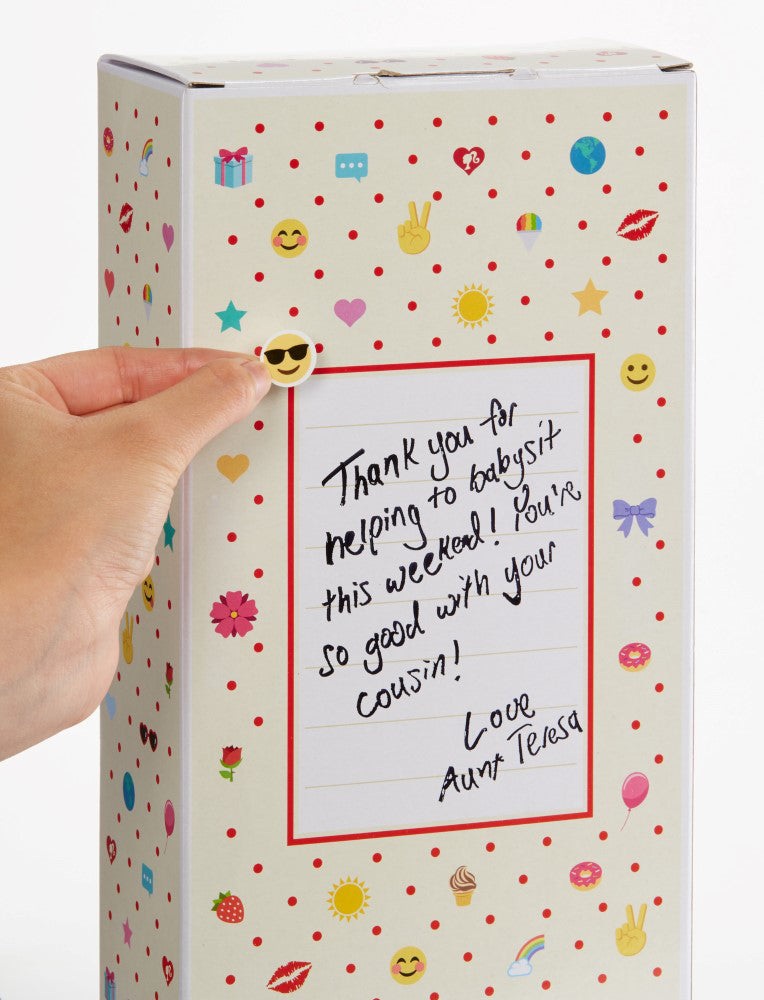 Thank you for
helping to babysit
this weekend! You're
so good with your
cousin!
Love
Aunt Teresa